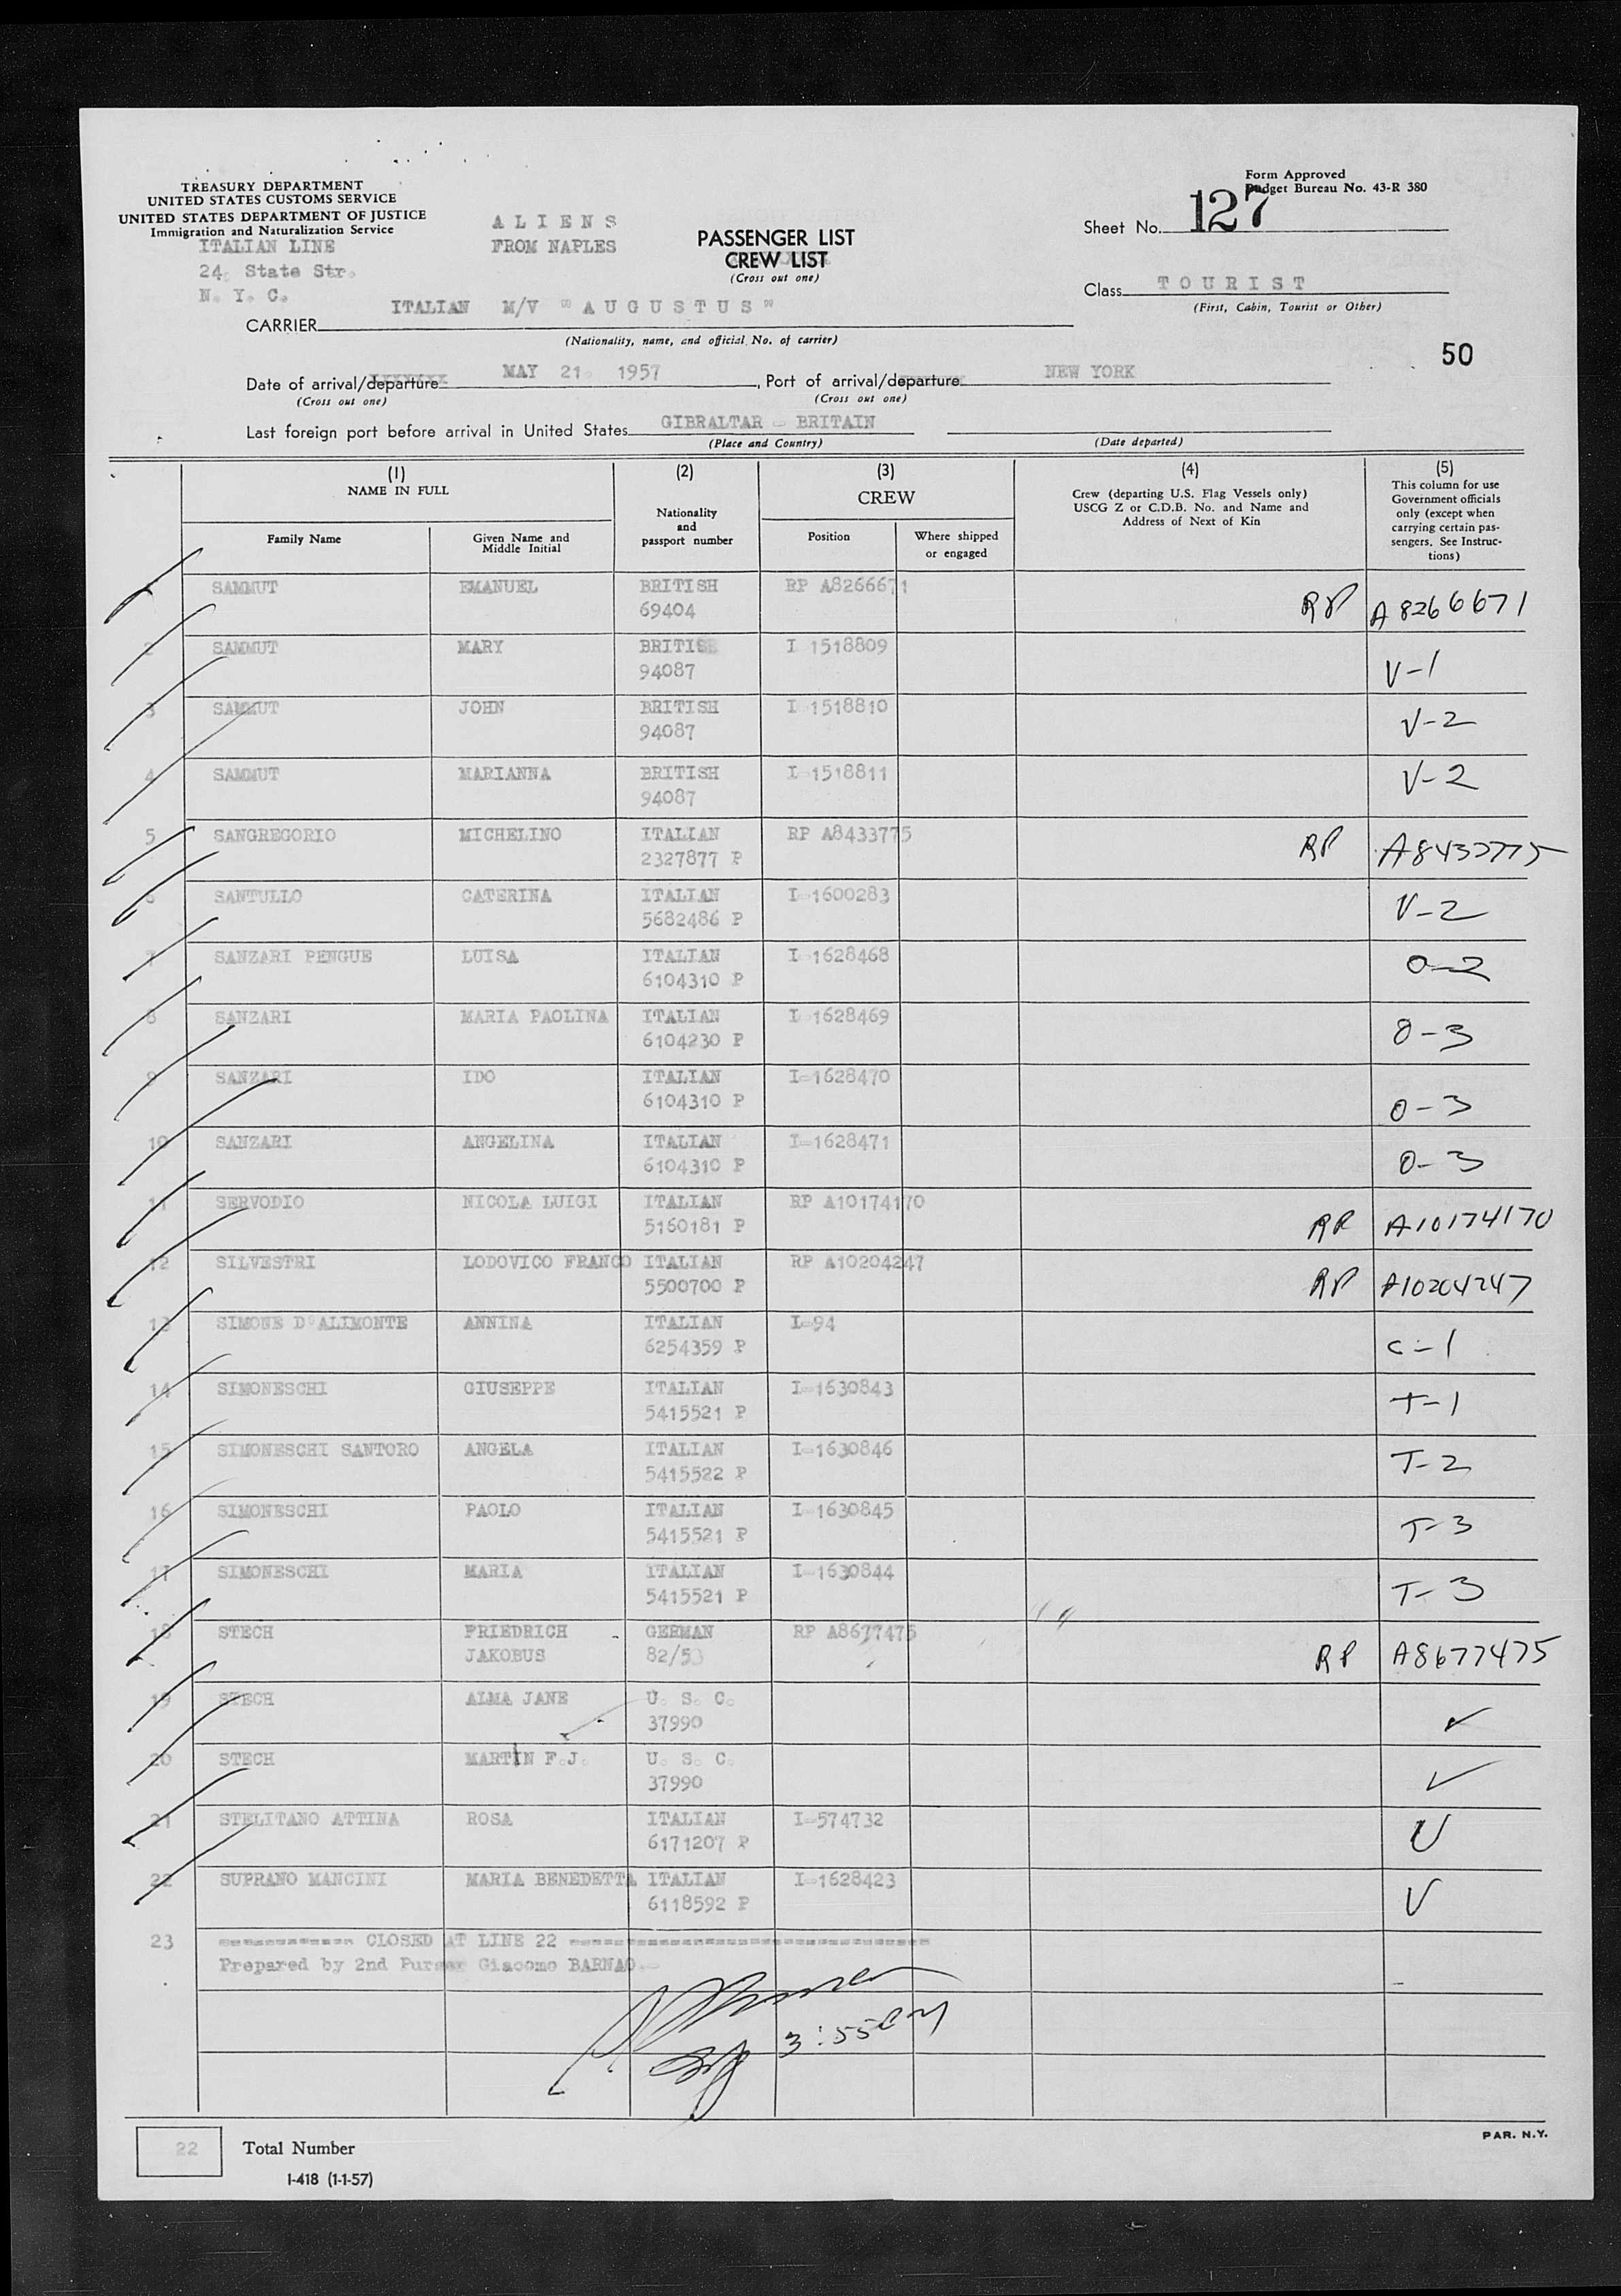 TREASURY DEPARTMENT
UNITED STATES CUSTOMS SERVICE
UNITED STATES DEPARTMENT OF JUSTICE
Immigration and Naturalization Service
ITALIAN LINE
24. State Str.
N. Y. C.
A L I E N S
FROM NAPLES
PASSENGER LIST
CREW LIST
(Cross out one)
Form Approved
Budget Bureau No. 43-R 380
Sheet No. 127
Class T O U R I S T
(First, Cabin, Tourist or Other)
CARRIER ITALIAN M/V "A U G U S T U S"
(Nationality, name, and official No. of carrier)
50
Date of arrival/departure MAY 21. 1957, Port of arrival/departure NEW YORK
(Cross out one) (Cross out one)
Last foreign port before arrival in United States GIBRALTAR - BRITAIN
(Place and Country) (Date departed)
(1) NAME IN FULL
Family Name
Given Name and Middle Initial
(2)
Nationality and passport number
(3)
CREW
Position
Where shipped or engaged
(4)
Crew (departing U.S. Flag Vessels only)
USCG Z or C.D.B. No. and Name and
Address of Next of Kin
(5)
This column for use
Government officials
only (except when
carrying certain pas-
sengers. See Instruc-
tions)
1 SAMMUT EMANUEL BRITISH RP A8266671
69404 RP A8266671
2 SAMMUT MARY BRITISH I 1518809
94087 V-1
3 SAMMUT JOHN BRITISH I-1518810
94087 V-2
4 SAMMUT MARIANNA BRITISH I-1518811
94087 V-2
5 SANGREGORIO MICHELINO ITALIAN RP A8433775
2327877 P RP A8433775
6 SANTULLO CATERINA ITALIAN I-1600283
5682486 P V-2
7 SANZARI PENGUE LUISA ITALIAN I-1628468
6104310 P O-2
8 SANZARI MARIA PAOLINA ITALIAN I-1628469
6104230 P O-3
9 SANZARI IDO ITALIAN I-1628470
6104310 P O-3
10 SANZARI ANGELINA ITALIAN I-1628471
6104310 P O-3
11 SERVODIO NICOLA LUIGI ITALIAN RP A10174170
5160181 P RP A10174170
12 SILVESTRI LODOVICO FRANCO ITALIAN RP A10204247
5500700 P RP A10204247
13 SIMONE D'ALIMONTE ANNINA ITALIAN I-94
6254359 P C-1
14 SIMONESCHI GIUSEPPE ITALIAN I-1630843
5415521 P T-1
15 SIMONESCHI SANTORO ANGELA ITALIAN I-1630846
5415522 P T-2
16 SIMONESCHI PAOLO ITALIAN I-1630845
5415521 P T-3
17 SIMONESCHI MARIA ITALIAN I-1630844
5415521 P T-3
18 STECH FRIEDRICH - GERMAN RP A8677475
JAKOBUS 82/53 RP A8677475
19 STECH ALMA JANE U. S. C.
37990
20 STECH MARTIN F.J. U. S. C.
37990
21 STELITANO ATTINA ROSA ITALIAN I-574732
6171207 P U
22 SUPRANO MANCINI MARIA BENEDETTA ITALIAN I-1628423
6118592 P V
23 CLOSED AT LINE 22
Prepared by 2nd Purser Giacomo BARNAO
3:55 PM
22 Total Number
I-418 (1-1-57)
PAR. N.Y.